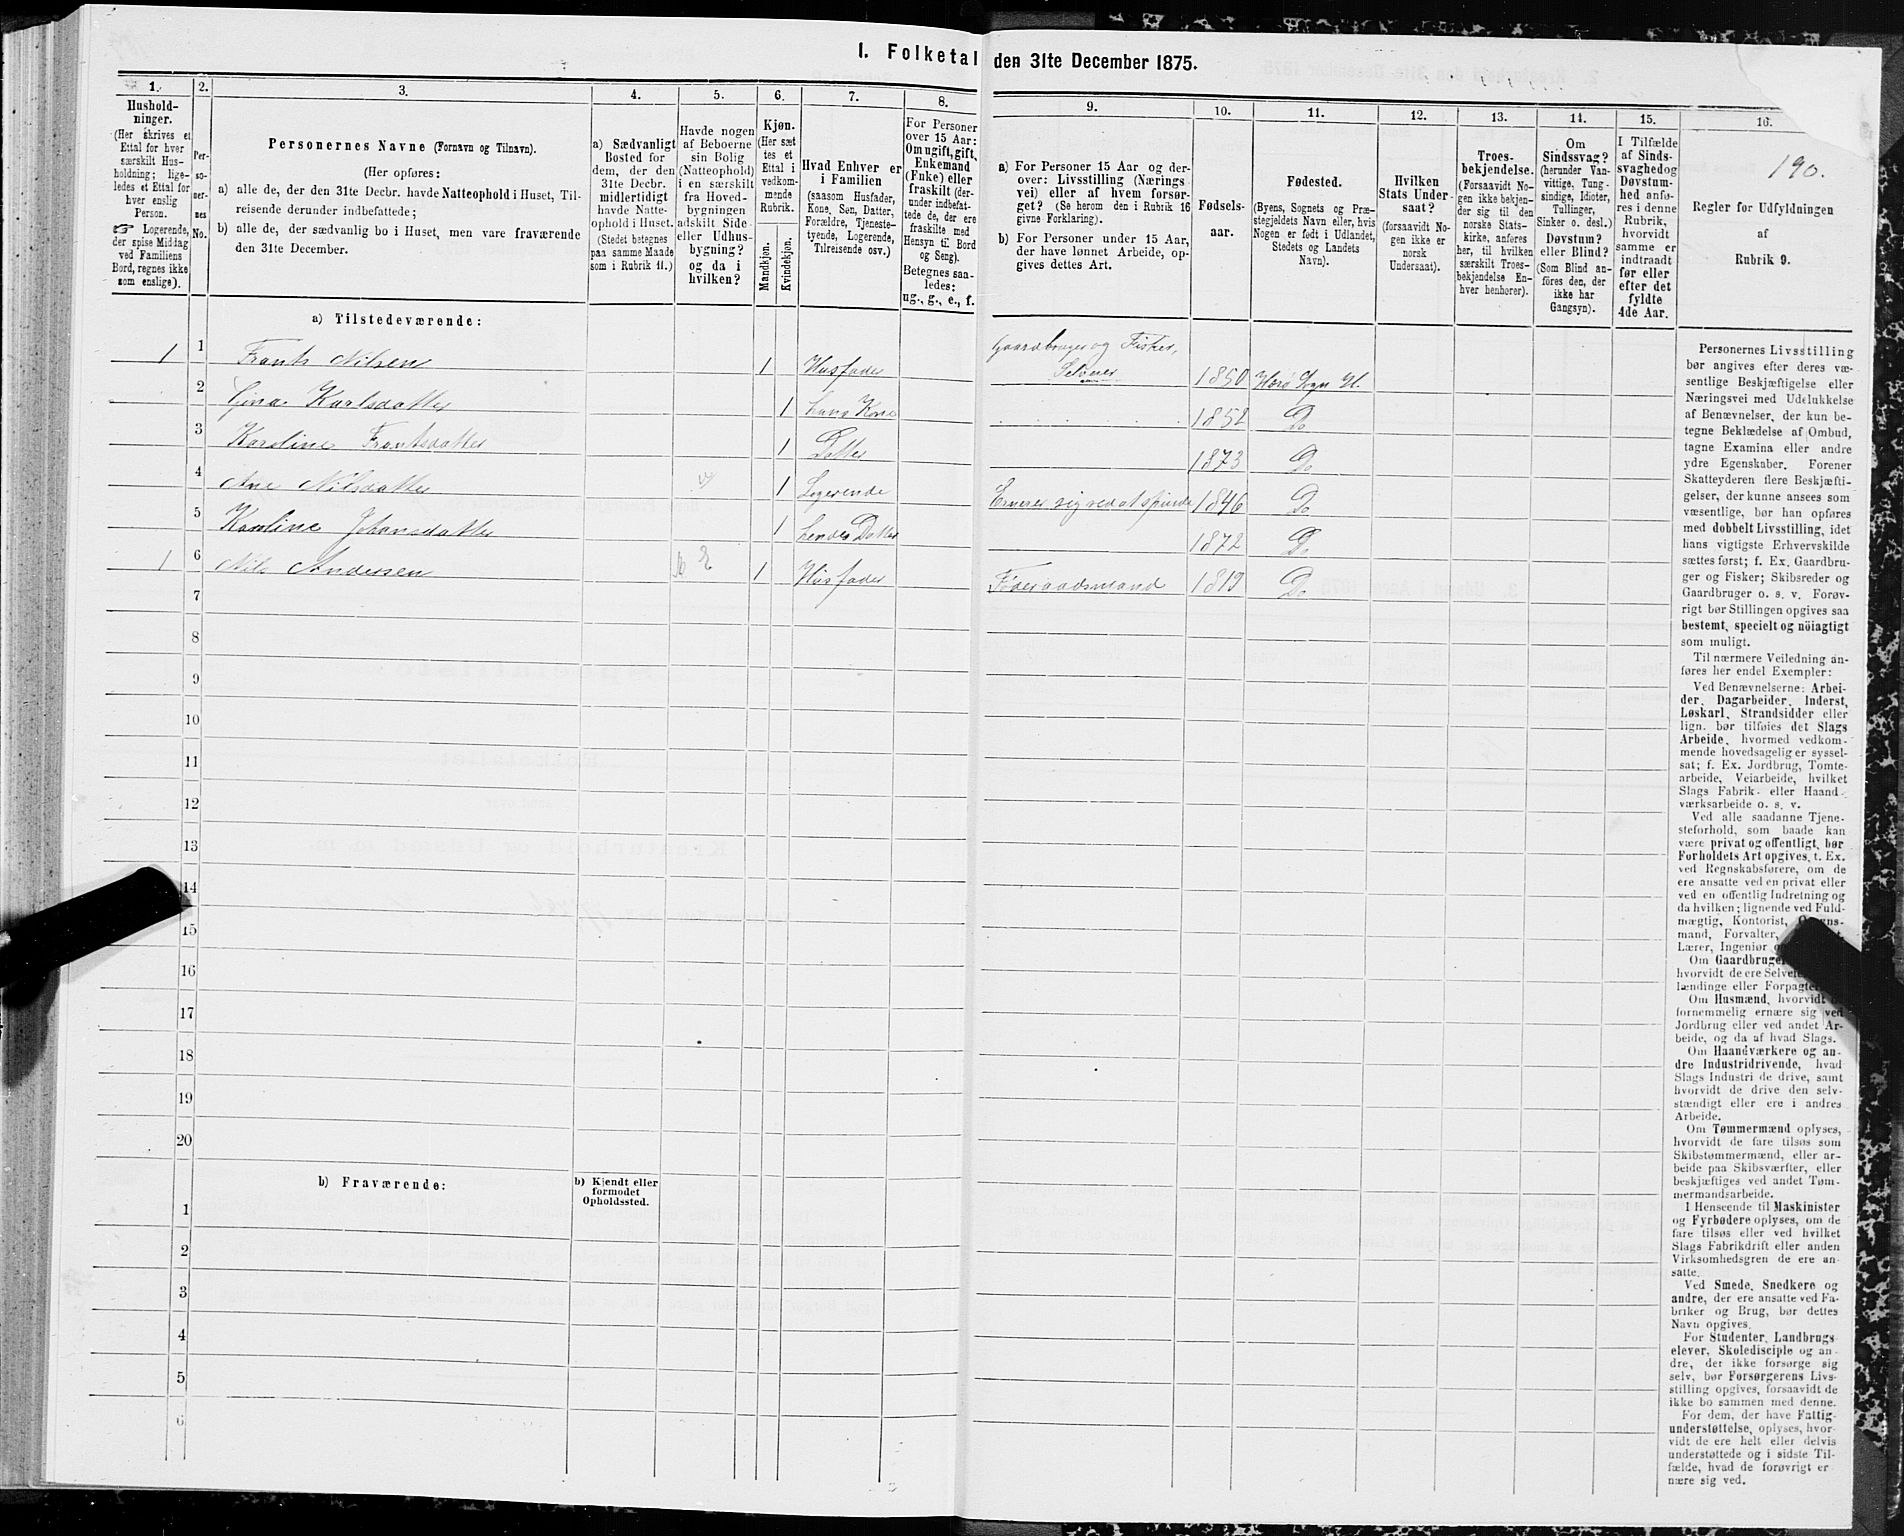 I. Folketal den 31te December 1875.
190.
1. 2. 3. 4. 5. 6. 7. 8. 9. 10. 11. 12. 13. 14. 15. 16.
Hushold-
ninger.
(Her skrives et
Ettal for hver
særskilt Hus-
holdning; lige-
ledes et Ettal for
hver enslig
Person.
☞ Logerende,
der spise Middag
ved Familiens
Bord, regnes ikke
som enslige).
Per-
so-
ner-
nes
No.
Personernes Navne (Fornavn og Tilnavn).
(Her opføres:
a) alle de, der den 31te Decbr. havde Natteophold i Huset, Til-
reisende derunder indbefattede;
b) alle de, der sædvanlig bo i Huset, men vare fraværende
den 31te December.
a) Sædvanligt
Bosted for
dem, der den
31te Decbr.
midlertidigt
havde Natte-
ophold i Huset.
(Stedet betegnes
paa samme Maade
som i Rubrik 11.)
Havde nogen
af Beboerne
sin Bolig
(Natteophold)
i en særskilt
fra Hoved-
bygningen
adskilt Side-
eller Udhus-
bygning?
og da i
hvilken?
Kjøn.
(Her sæt
tes et
Ettal i
vedkom-
mende
Rubrik.
Mandkjøn.
Kvindekjøn.
Hvad Enhver er
i Familien
(saasom Husfader,
Kone, Søn, Datter,
Forældre, Tjeneste-
tyende, Logerende,
Tilreisende osv.)
For Personer
over 15 Aar:
Om ugift, gift,
Enkemand
(Enke) eller
fraskilt (der-
under indbefat-
tede de, der ere
fraskilte med
Hensyn til Bord
og Seng).
Betegnes saa-
ledes:
ug., g., e., f.
a) For Personer 15 Aar og der-
over: Livsstilling (Nærings
vei) eller af hvem forsør-
get? (Se herom den i Rubrik 16
givne Forklaring).
b) For Personer under 15 Aar,
der have lønnet Arbeide, op-
gives dettes Art.
Fødsels-
aar.
Fødested.
(Byens, Sognets og Præ-
stegjeldets Navn eller, hvis
Nogen er født i Udlandet,
Stedets og Landets
Navn).
Hvilken
Stats Under-
saat?
(forsaavidt No-
gen ikke er
norsk
Undersaat).
Troes-
bekjendelse.
(Forsaavidt No-
gen ikke bekjen-
der sig til den
norske Stats-
kirke, anføres
her, til hvilken
særskilt Troes-
bekjendelse En-
hver henhører).
Om
Sindssvag?
(herunder Van-
vittige, Tung-
sindige, Idioter,
Tullinger,
Sinker o. desl.)
Døvstum?
eller Blind?
(Som Blind an-
føres den, der
ikke har
Gangsyn).
I Tilfælde
af Sinds-
svaghed og
Døvstum-
hed anfø-
res i denne
Rubrik,
hvorvidt
samme er
indtraadt
før eller
efter det
fyldte
4de Aar.
Regler for Udfyldningen
af
Rubrik 9.
a) Tilstedeværende:
1 1 Frants Nilsen 1 Husfader Gaardbruger og Fisker, Selveier 1850 Herø Sogn H.
2 Gina Karlsdatter 1 hans Kone 1852 Do
3 Karoline Frantsdatter 1 Datter 1873 Do
4 Ane Nilsdatter 1 Logerende Ernærer sig ved at spinde 1846 Do
5 Karoline Johansdatter 1 hendes Datter 1872 Do
1 6 Nils Andersen 1 Husfader Føderaadsmand 1819 Do
7
8
9
10
11
12
13
14
15
16
17
18
19
20
b) Fraværende:
b) Kjendt eller
formodet
Opholdssted.
1
2
3
4
5
6
Personernes Livsstilling
bør angives efter deres væ-
sentlige Beskjæftigelse eller
Næringsvei med Udelukkelse
af Benævnelser, der kun be-
tegne Beklædelse af Ombud,
tagne Examina eller andre
ydre Egenskaber. Forener
Skatteyderen flere Beskjæfti-
gelser, der kunne ansees som
væsentlige, bør han opføres
med dobbelt Livsstilling, idet
hans vigtigste Erhvervskilde
sættes først; f. Ex. Gaardbru-
ger og Fisker; Skibsreder og
Gaardbruger o. s. v. Forøv-
rigt bør Stillingen opgives saa
bestemt, specielt og nöiagtigt
som muligt.
Til nærmere Veiledning an-
føres her endel Exempler:
Ved Benævnelserne: Arbei-
der, Dagarbeider, Inderst,
Løskarl, Strandsidder eller
lign. bør tilføies det Slags
Arbeide, hvormed vedkom-
mende hovedsagelig er syssel-
sat; f. Ex. Jordbrug, Tomte-
arbeide, Veiarbeide, hvilket
Slags Fabrik- eller Haand-
værksarbeide o. s. v.
Ved alle saadanne Tjene-
steforhold, som baade kan
være privat og offentligt, bør
Forholdets Art opgives, f. Ex.
ved Regnskabsførere, om de
ere ansatte ved en privat eller
ved en offentlig Indretning og
da hvilken; lignende ved Fuld-
mægtig, Kontorist,
mand, Forvalter,
Lærer, Ingeniør
Om Gaardbruger
hvorvidt de ere
lændinge eller
Om Husmænd, hvorvidt
fornemmelig ernære sig ved
Jordbrug eller ved andet Ar-
beide, og da af hvad Slags.
Om Haandværkere og an-
dre Industridrivende, hvad
Slags Industri de drive, samt
hvorvidt de drive den selv-
stændigt eller ere i andres
Arbeide.
Om Tømmermænd oplyses,
hvorvidt de fare tilsøs som
Skibstømmermænd, eller ar-
beide paa Skibsværfter, eller
beskjæftiges ved andet Tøm-
mermandsarbeide.
I Henseende til Maskinister
og Fyrbødere oplyses, om de
fare tilsøs eller ved hvilket
Slags Fabrikdrift eller anden
Virksomhedsgren de ere an-
satte.
Ved Smede, Snedkere og
andre, der ere ansatte ved Fa-
briker og Brug, bør dettes
Navn opgives.
For Studenter, Landbrugs-
elever, Skoledisciple og an-
dre, der ikke forsørge sig
selv, bør Forsørgerens Livs-
stilling opgives, forsaavidt de
ikke bo sammen med denne.
For dem, der have Fattig-
understøttelse, oplyses, hvor-
vidt de ere helt eller delvis
understøttede og i sidste Til-
fælde, hvad de forøvrigt er-
nære sig ved.